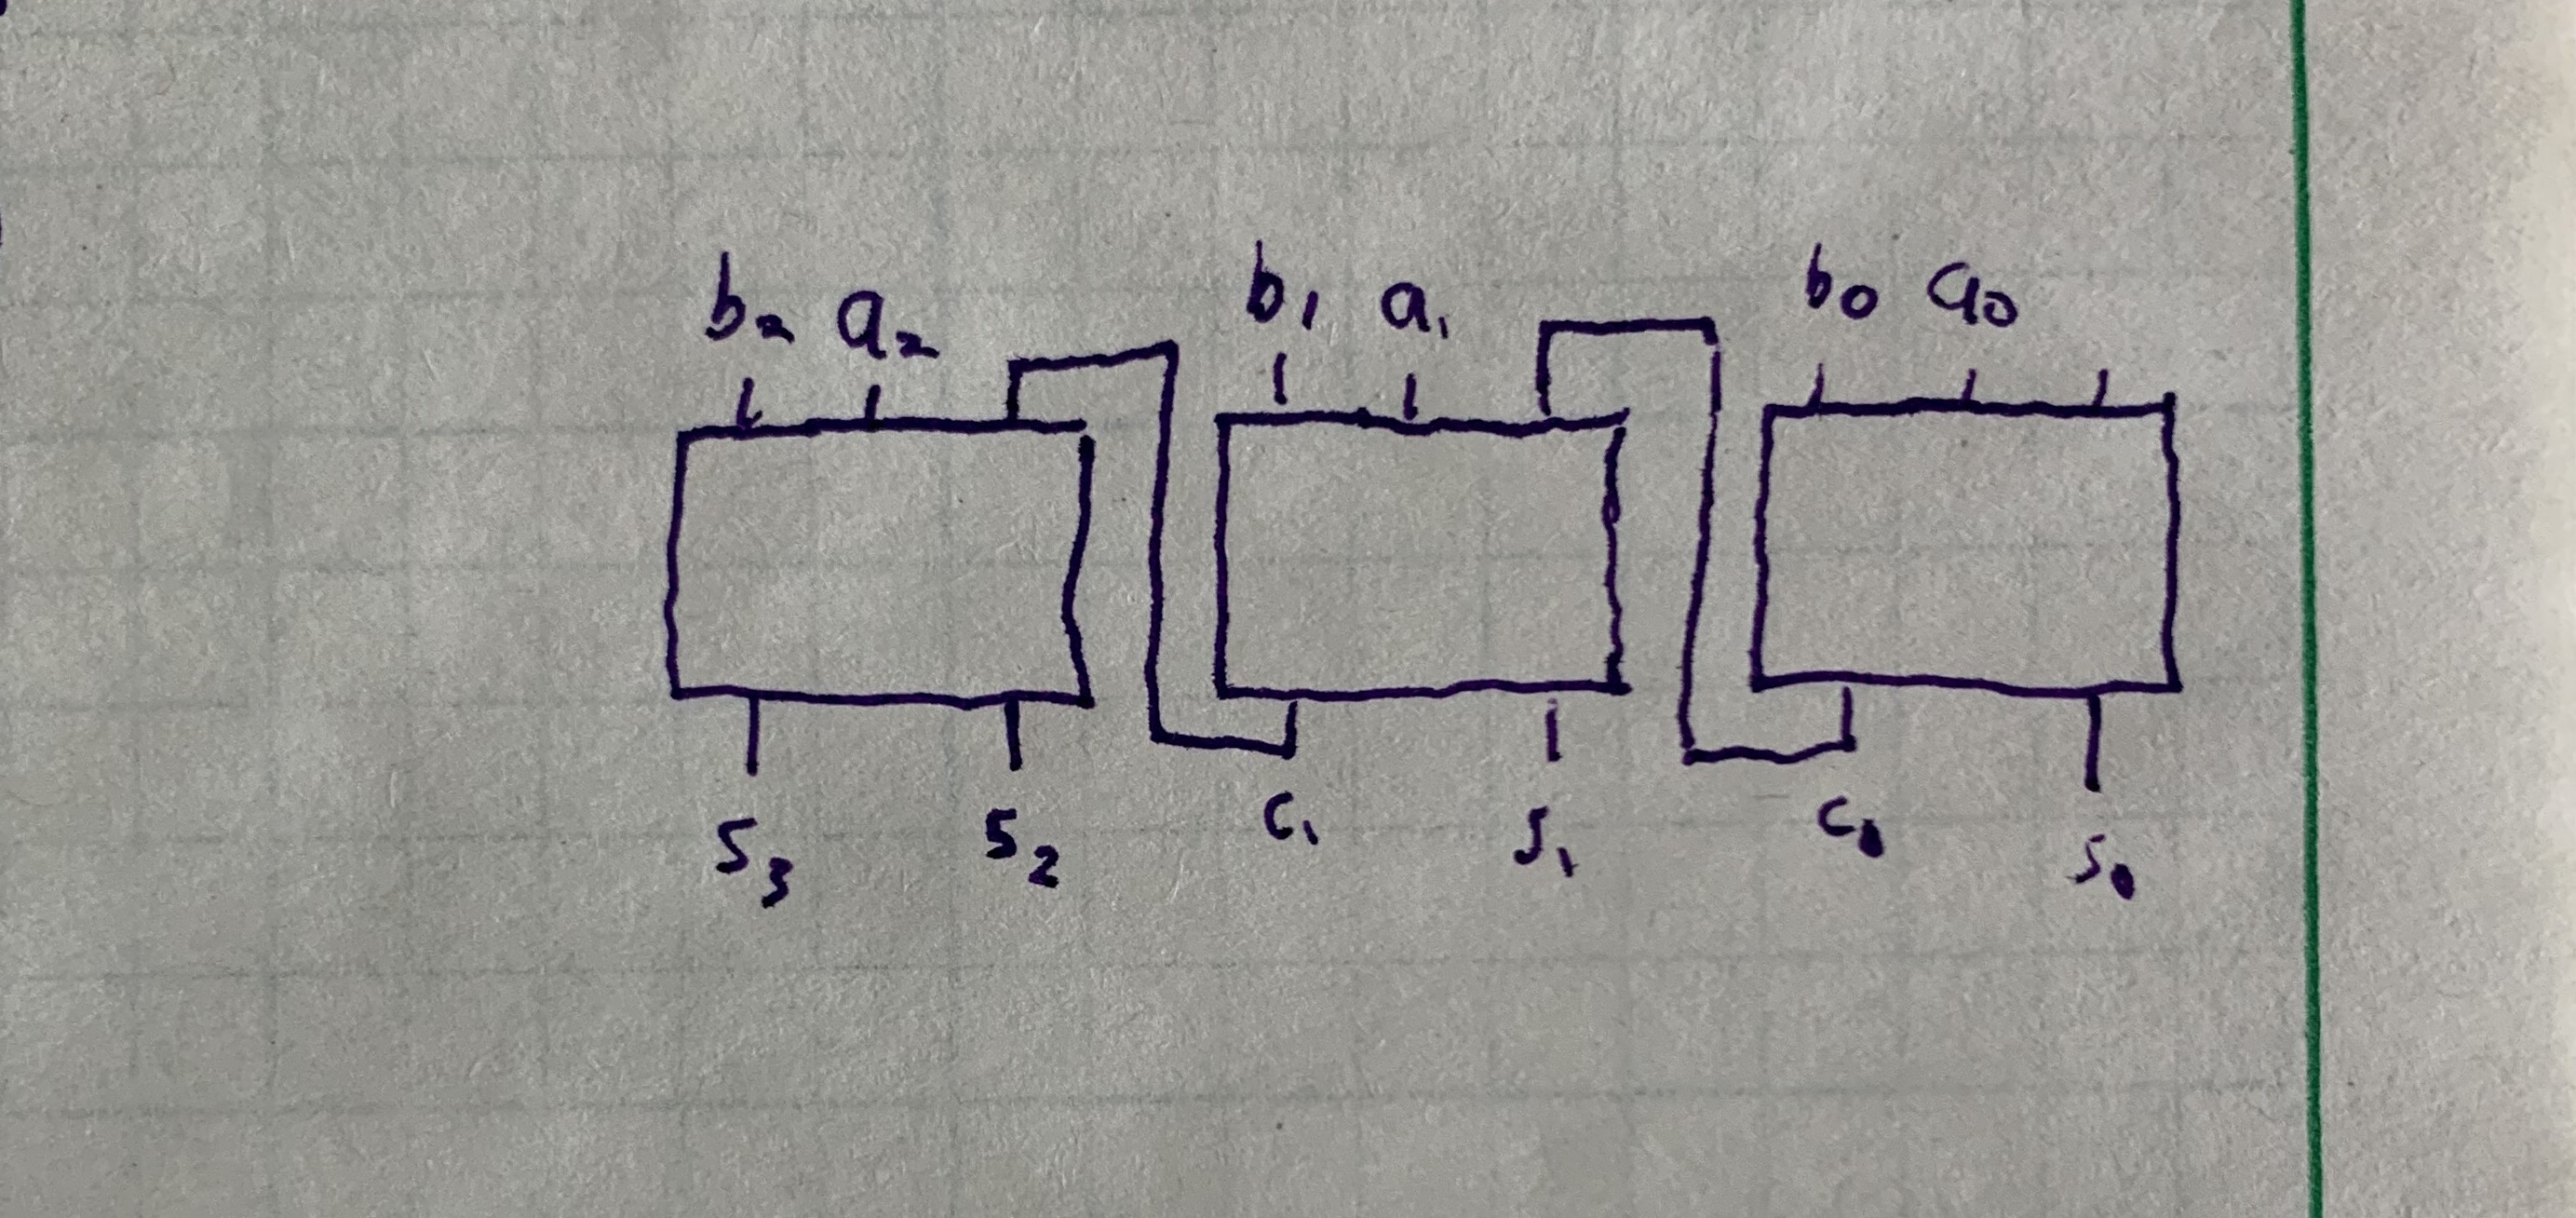 b₂ a₂ b₁ a₁ b₀ a₀
s₃ s₂ c₁ s₁ c₀ s₀